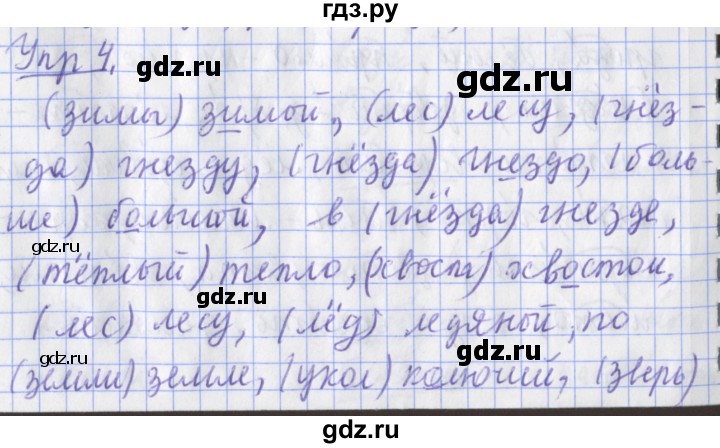 гдз.ру
Упр 4.
gdz.ru
gdz.ru
(зимы) зимой, (лес) лесу, (гнёз-
да) гнезду, (гнёзда) гнездо, (боль-
ше) большой, в (гнёзда) гнезде,
gdz.ru
(тёплый) тепло, (хвоста) хвостом,
gdz.ru
(лес) лесу, (лёд) ледяной, по
gdz.ru
gdz.ru
(земли) земле, (укол) колючий, (зверь)
gdz.ru
gdz.ru